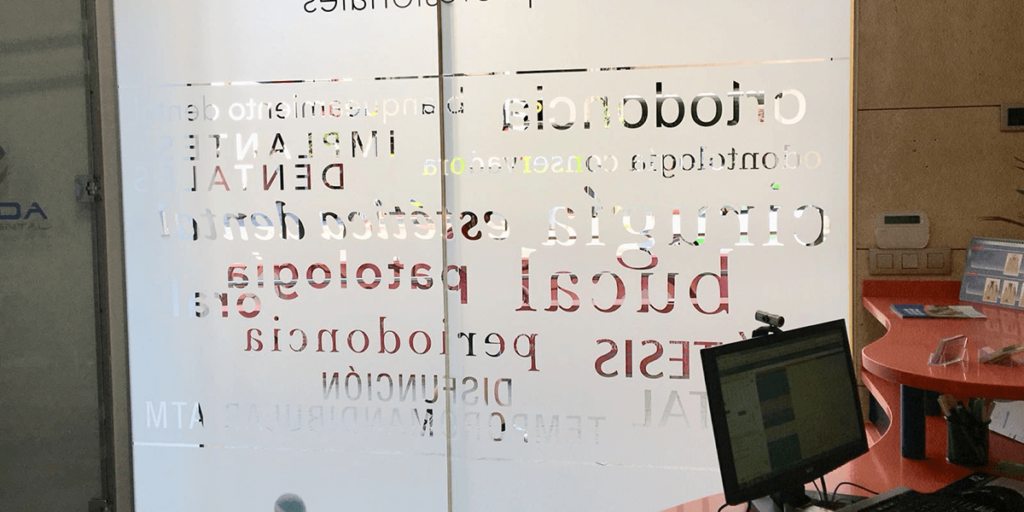 profesionales
ortodoncia blanqueamiento dental
odontología conservadora IMPLANTES
DENTALES
cirugía estética dental
bucal patología
oral
periodoncia
DISFUNCIÓN
TEMPOROMANDIBULAR ATM